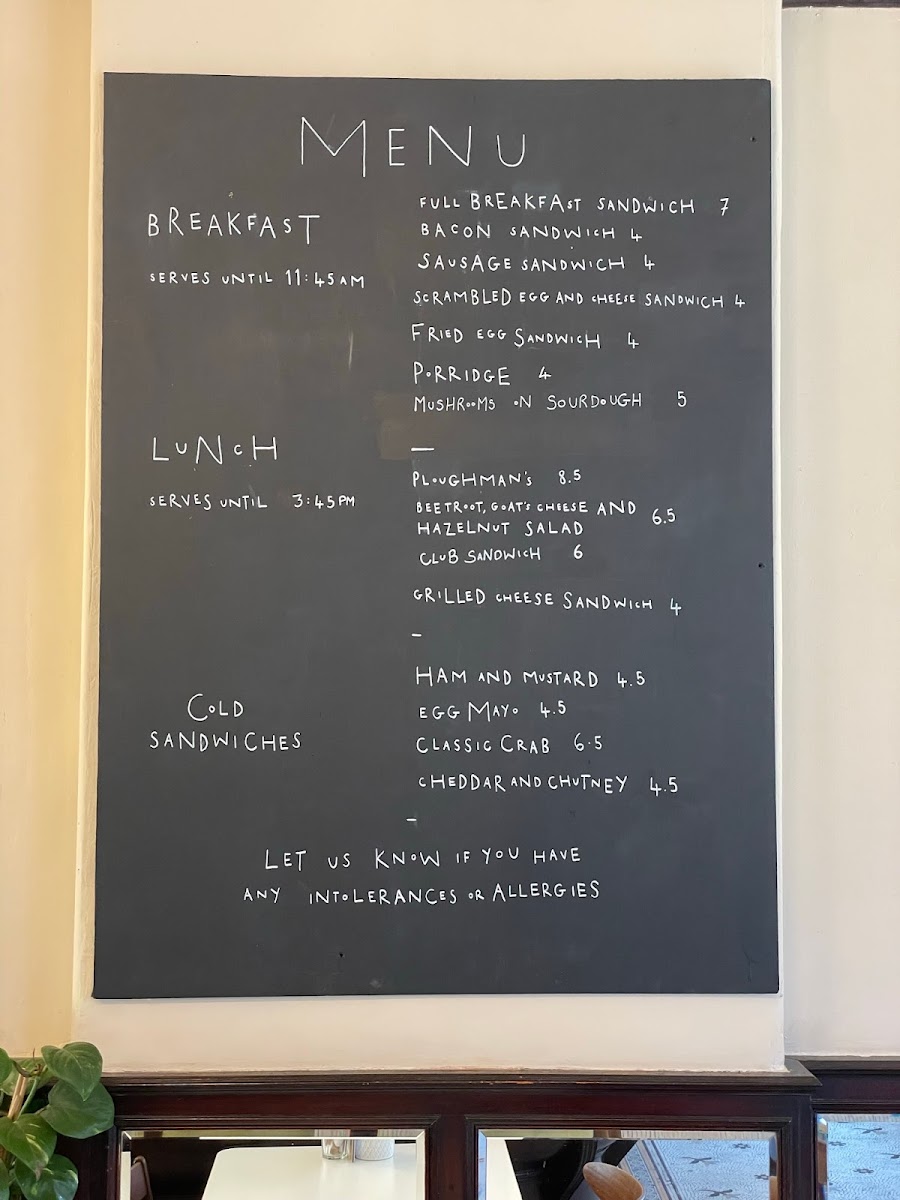 MENU
BREAKFAST
SERVES UNTIL 11:45AM
FULL BREAKFAST SANDWICH 7
BACON SANDWICH 4
SAUSAGE SANDWICH 4
SCRAMBLED EGG AND CHEESE SANDWICH 4
FRIED EGG SANDWICH 4
PORRIDGE 4
MUSHROOMS ON SOURDOUGH 5
—
LUNCH
SERVES UNTIL 3:45PM
PLOUGHMAN'S 8.5
BEETROOT, GOAT'S CHEESE AND
HAZELNUT SALAD 6.5
CLUB SANDWICH 6
GRILLED CHEESE SANDWICH 4
–
COLD
SANDWICHES
HAM AND MUSTARD 4.5
EGG MAYO 4.5
CLASSIC CRAB 6.5
CHEDDAR AND CHUTNEY 4.5
–
LET US KNOW IF YOU HAVE
ANY INTOLERANCES OR ALLERGIES